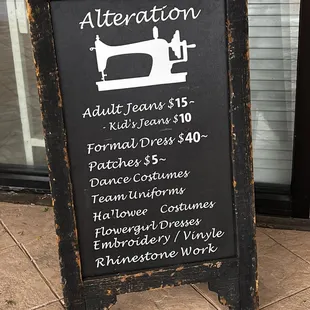 Alteration
Adult Jeans $15~
- Kid's Jeans $10
Formal Dress $40~
Patches $5~
Dance Costumes
Team Uniforms
Ha'lowee Costumes
Flowergirl Dresses
Embroidery / Vinyle
Rhinestone Work